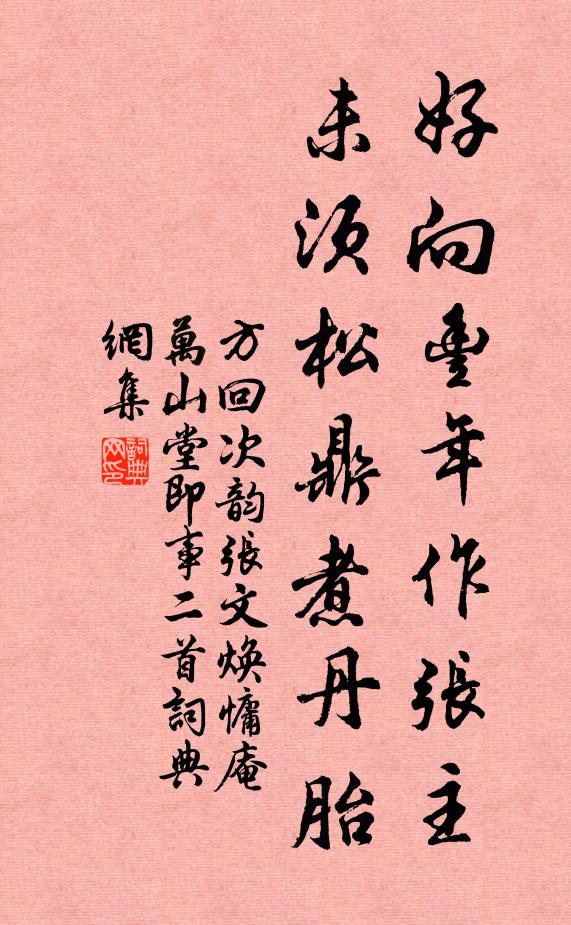 好向豊年作張主
未須松鼎煮丹胎
方回次韵張文焕慵庵
萬山堂即事二首詞典
網集
詞典
网印